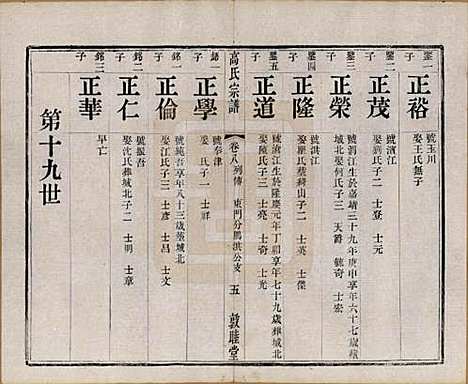 鑒一子
正裕
號玉川
娶王氏無子
鑒二子
正茂
號濱江
娶 氏子二 士登 士元
鑒三子
正榮
號 江生於嘉靖三十九年庚申享年六十七歲
城北娶何氏子三 天爵 毓奇 士宏
鑒四子
正隆
號洪江
子二 士英 士傑
鑒五子
正道
號滄江生於隆慶元年丁卯享年七十九歲葬城北
娶陳氏子三 士亮 士奇 士光
高氏宗譜
卷八列傳 東門分爲洪公支 五 敦睦堂
銘一子
正學
號奉津
娶 氏子一 士祥
銘一子
正倫
號純吾享年八十三歲葬城北
娶江氏子三 士彥 士昌 士文
銘二子
正仁
號振吾
娶沈氏葬城北子二 士明 士章
銘三子
正華
早亡
第十九世